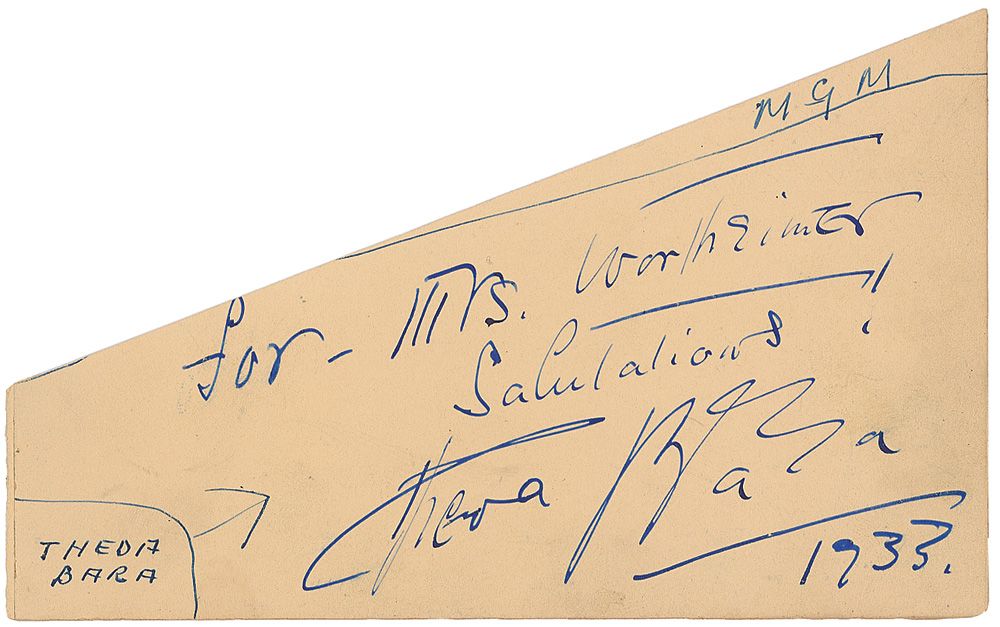 MGM
For - Mrs. Wortheimer
Salutations!
Theda Bara
1933.
THEDA
BARA